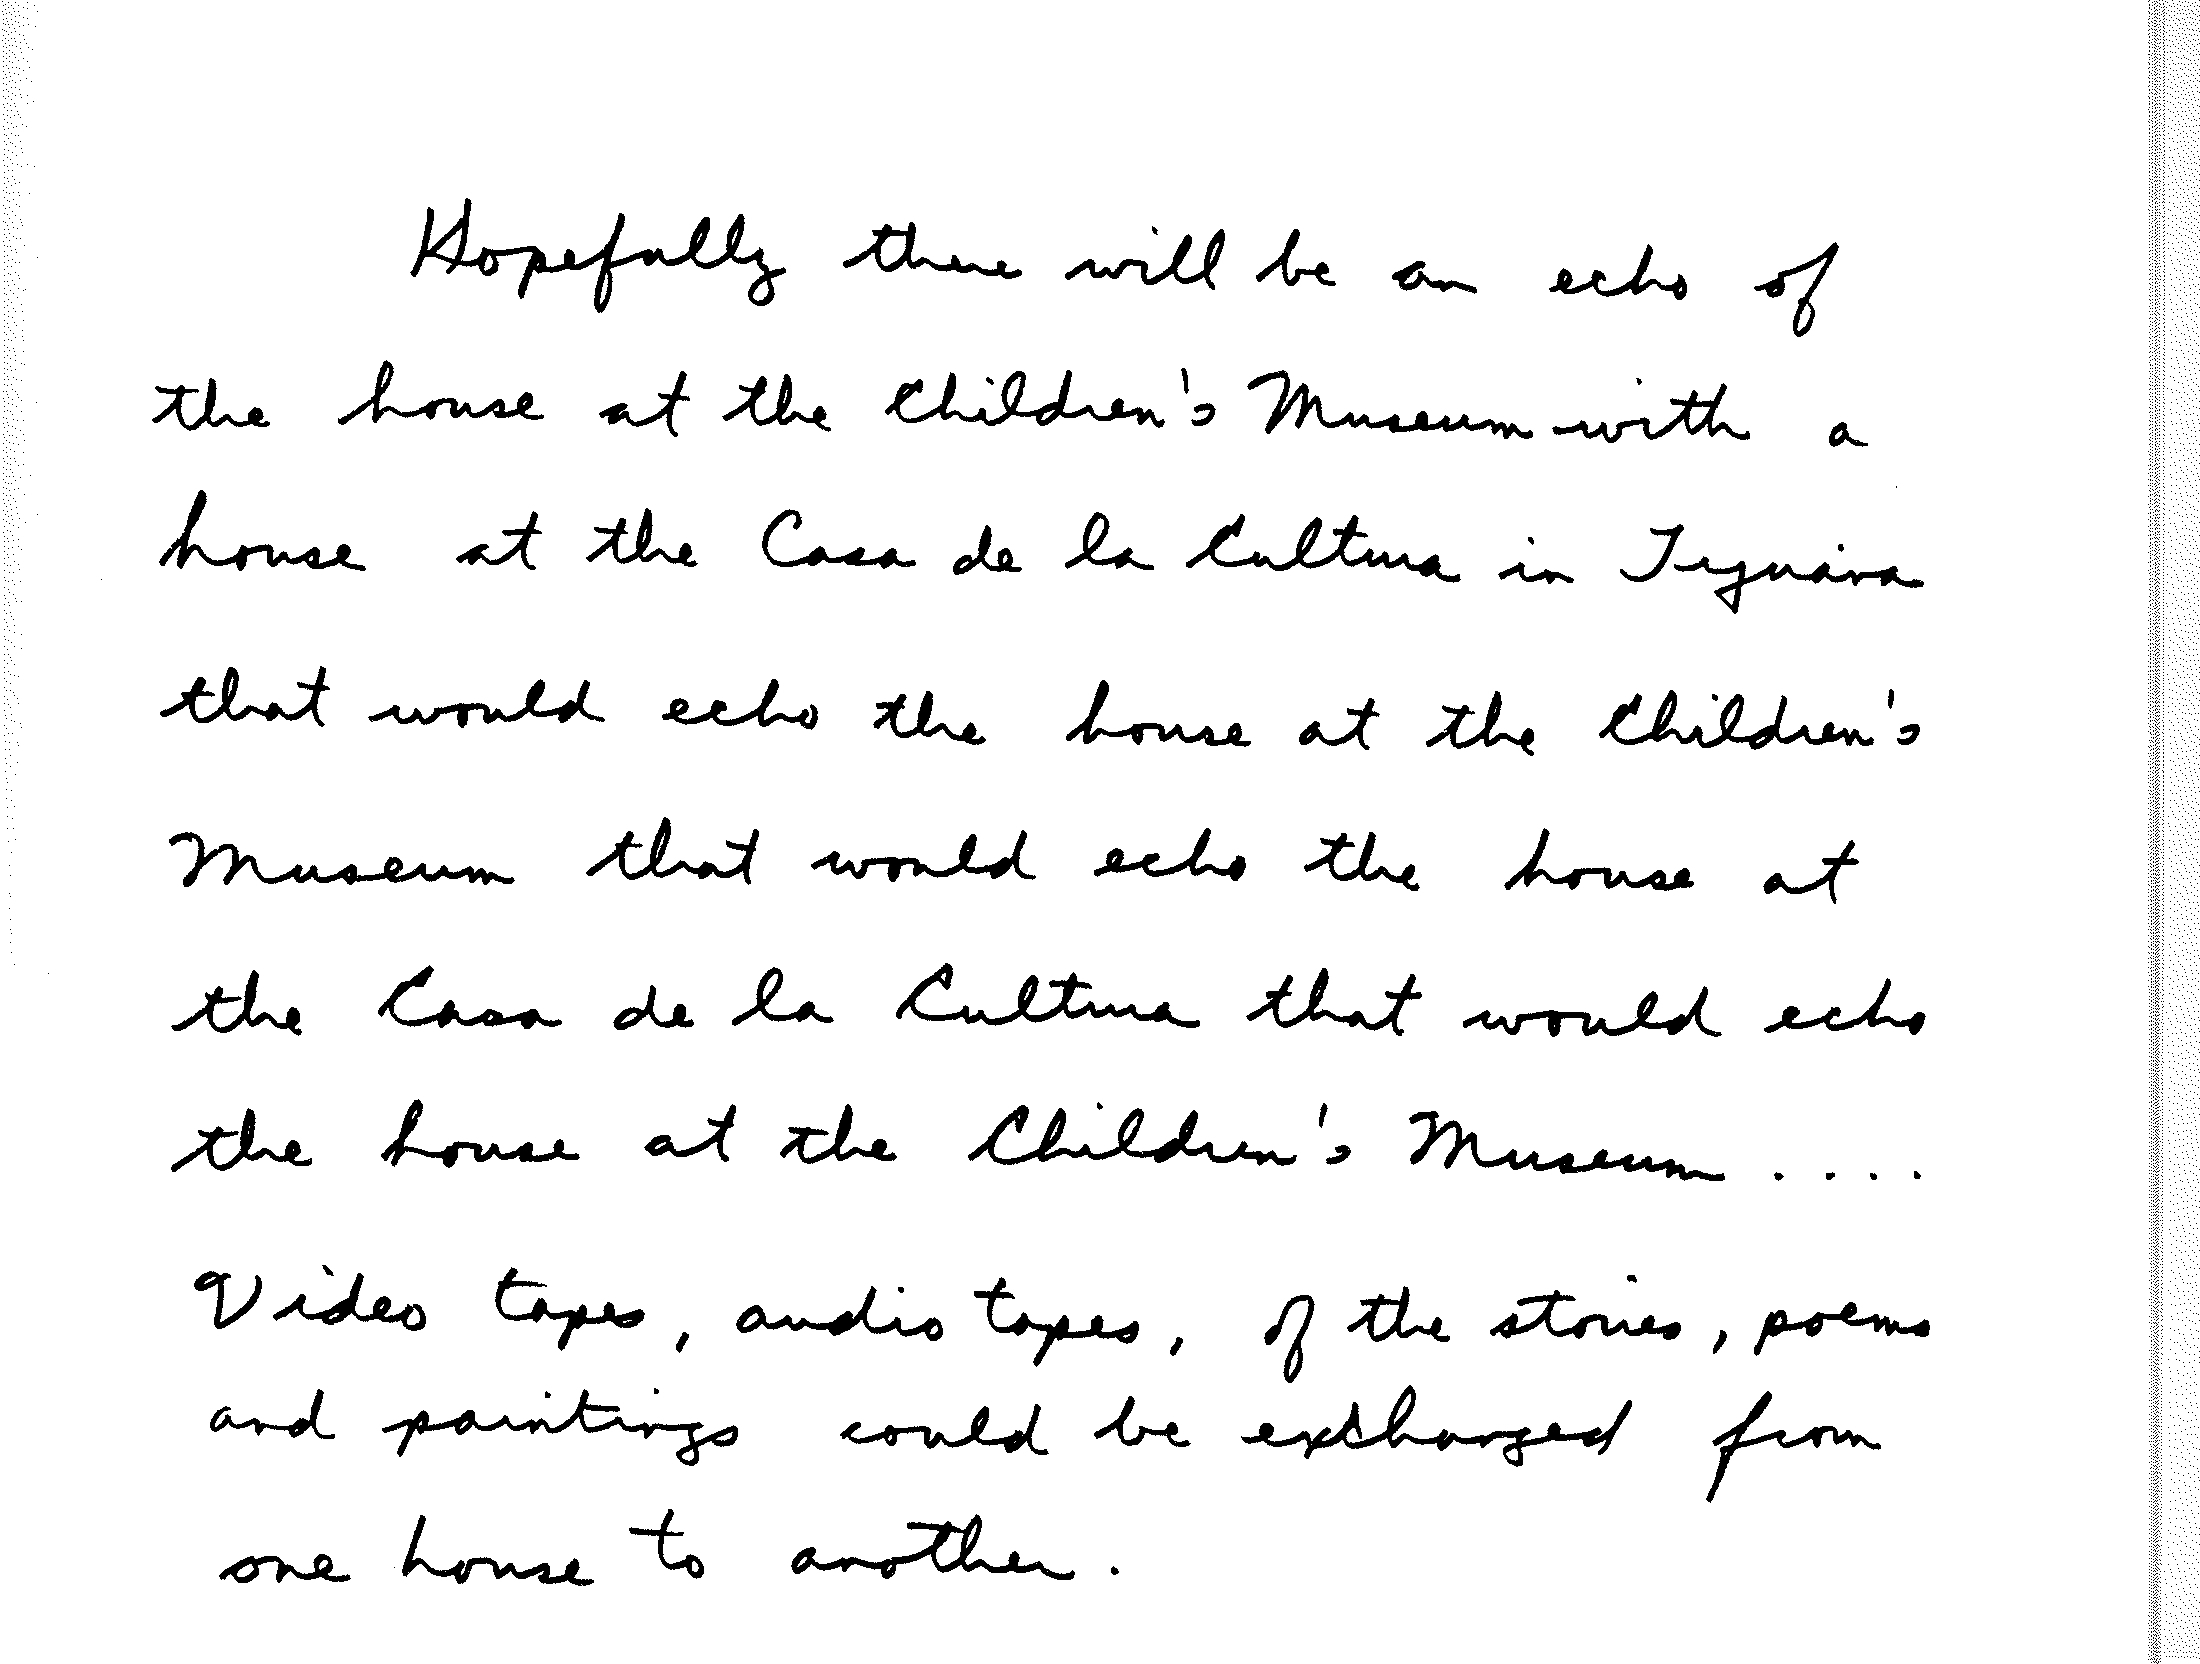 Hopefully there will be an echo of
the house at the Children's Museum with a
house at the Casa de la Cultura in Tijuana
that would echo the house at the Children's
Museum that would echo the house at
the Casa de la Cultura that would echo
the house at the Children's Museum ....
Video tapes, audio tapes, of the stories, poems
and paintings could be exchanged from
one house to another.